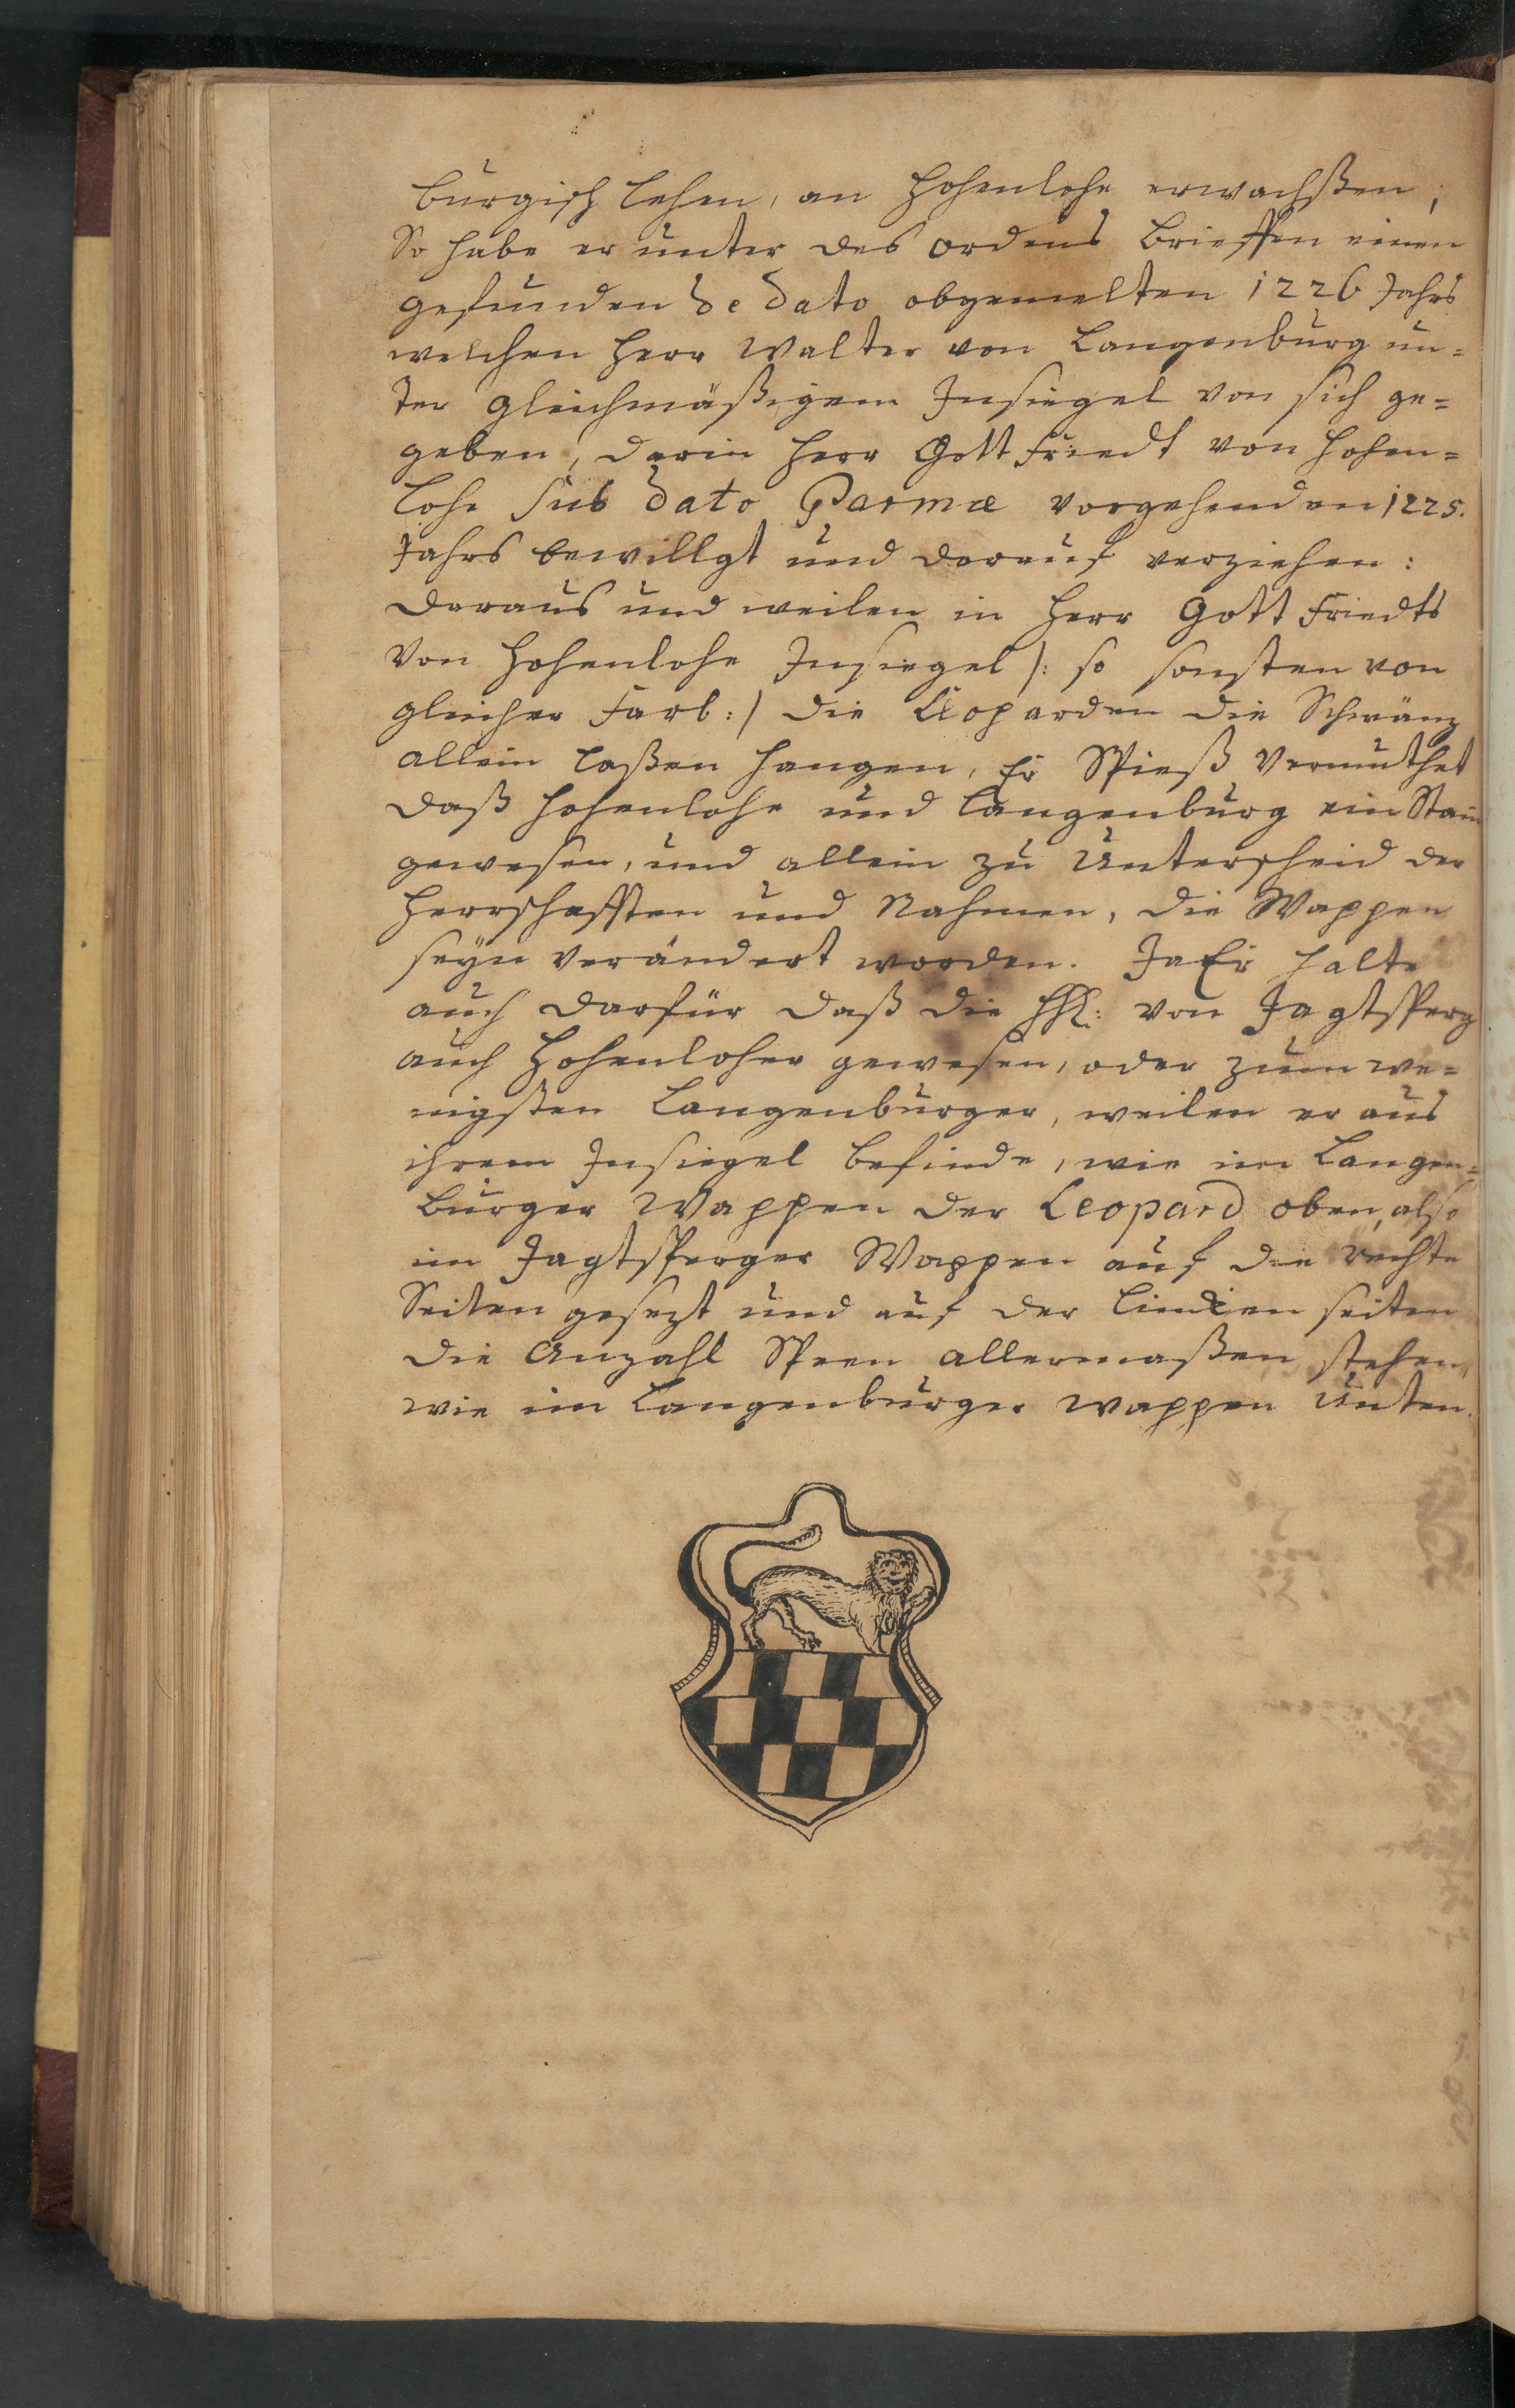 burgisch lehen, an Hohenlohe erwachßen,
So habe er unter des ordens brieffen einen
gefunden de dato obgemelten 1226 Jahrs
welchen Herr Walter von Langenburg un=
ter gleichmäßigem Insiegel von sich ge=
geben, darin Herr Gottfriedt von Hohen=
lohe sub dato Parmæ vorgehenden 1225.
Jahrs bewillgt und darauf verziehen:
daraus und weilen in Herr Gottfriedts
von Hohenlohe Insiegel /: so sonsten von
gleicher Farb :/ die Leoparden die Schwänz
allein laßen hangen, Er Spieß vermuthet
daß Hohenlohe und Langenburg ein Stam
gewesen, und allein zu Unterscheid der
Herrschafften und Nahmen, die Wappen
seyn verändert worden. Ja Er halte
auch darfür daß die von Jagtsperg
auch Hohenloher gewesen, oder zum we=
nigsten Langenburger, weilen er aus
ihrem Insiegel befinde, wie im Langen=
burger Wappen der Leopard oben, also
im Jagtsperger Wappen auf die rechte
Seiten gesezt und auf der lincken seiten
die Anzahl allermaßen stehen,
wie im Langenburger wappen unten.